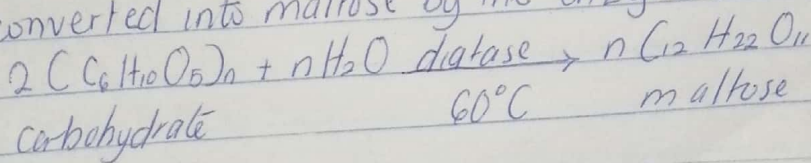 converted into maltose by the
2(C6H10O5)n + nH2O diatase → nC12H22O11
carbohydrate 60°C maltose